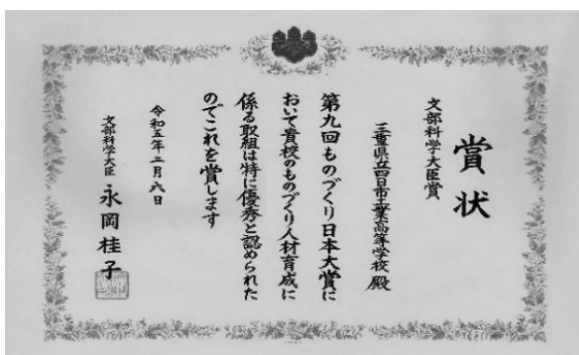 賞状
文部科学大臣賞
三重県立四日市工業高等学校 殿
第九回ものづくり日本大賞に
おいて貴校のものづくり人材育成に
係る取組は特に優秀と認められた
のでこれを賞します
令和五年二月六日
文部科学大臣 永岡桂子